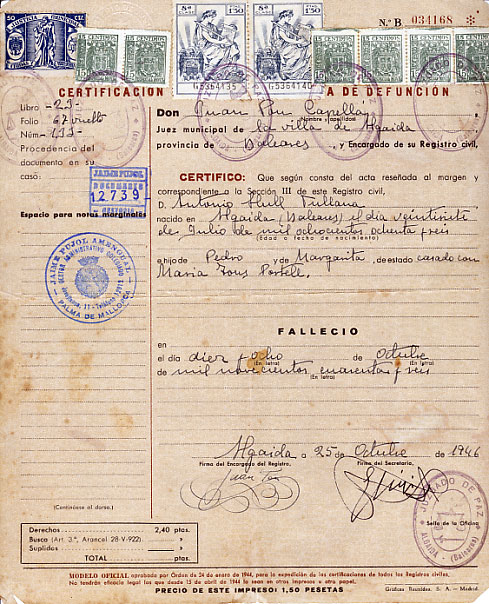 N.º B 034168
50 CTS
JUSTICIA MUNICIPAL
8ª CLASE 1'50
8ª CLASE 1'50
15 CENTIMOS
15 CENTIMOS
15 CENTIMOS
15 CENTIMOS
15 CENTIMOS
15 CENTIMOS
G5364135
G5364140
CERTIFICACION
TA DE DEFUNCIÓN
Libro -23-
Folio 67 vuelto
Núm. -133-
Procedencia del
documento en su
caso:
JAIME PUJOL
DOCUMENTO
12739
GESTORIA
Espacio para notas marginales
JAIME PUJOL AMENGUAL
GESTOR ADMINISTRATIVO COLEGIADO
PALMA DE MALLORCA
(Continúese al dorso).
Don Juan Pou Capellá
Nombre y apellidos
Juez municipal de la villa de Algaida
provincia de Baleares, y Encargado de su Registro civil,
CERTIFICO: Que según consta del acta reseñada al margen y
correspondiente a la Sección III de este Registro civil,
D. Antonio Fullana
nacido en Algaida (Baleares) el día veintisiete
de Julio de mil ochocientos ochenta y seis
(Edad o fecha de nacimiento)
hijo de Pedro y de Margarita, de estado casado con
Maria Pons Portell.
FALLECIO
en
el día diez y ocho de Octubre
(En letra) (En letra)
de mil novecientos cuarenta y seis
(En letra)
Algaida a 25 de Octubre de 1946
Firma del Encargado del Registro,
Firma del Secretario,
Juan Pou
JUZGADO DE PAZ
ALGAIDA - (Baleares)
Sello de la Oficina
Derechos 2,40 ptas.
Busca (Art. 3.º, Arancel 28-V-922) »
Suplidos »
TOTAL ptas.
MODELO OFICIAL, aprobado por Orden de 24 de enero de 1944, para la expedición de las certificaciones de todos los Registros civiles.
No tendrán eficacia legal las que desde 15 de abril de 1944 lo sean en otros impresos u otro papel.
PRECIO DE ESTE IMPRESO: 1,50 PESETAS
Gráficas Reunidas, S. A. - Madrid.